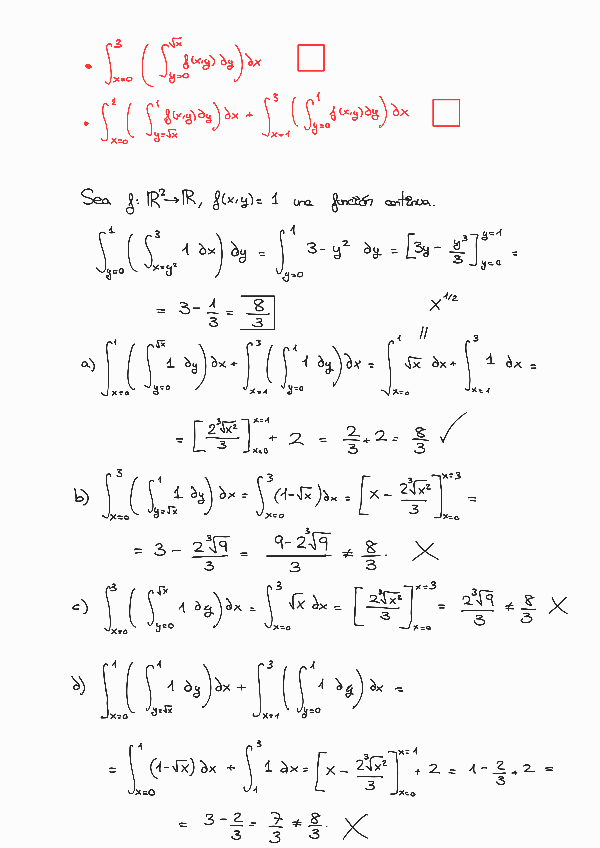 • ∫_{x=0}^{3} ( ∫_{y=0}^{√x} f(x,y) ∂y ) ∂x □
• ∫_{x=0}^{1} ( ∫_{y=√x}^{1} f(x,y) ∂y ) ∂x + ∫_{x=1}^{3} ( ∫_{y=0}^{1} f(x,y) ∂y ) ∂x □
Sea f: ℝ²→ℝ, f(x,y)= 1 una función continua.
∫_{y=0}^{1} ( ∫_{x=y²}^{3} 1 ∂x ) ∂y = ∫_{y=0}^{1} 3-y² ∂y = [3y - y³/3]_{y=0}^{y=1} =
= 3 - 1/3 = 8/3
x^{1/2}
//
a) ∫_{x=0}^{1} ( ∫_{y=0}^{√x} 1 ∂y ) ∂x + ∫_{x=1}^{3} ( ∫_{y=0}^{1} 1 ∂y ) ∂x = ∫_{x=0}^{1} √x ∂x + ∫_{x=1}^{3} 1 ∂x =
= [2∛x²/3]_{x=0}^{x=1} + 2 = 2/3 + 2 = 8/3 ✓
b) ∫_{x=0}^{3} ( ∫_{y=√x}^{1} 1 ∂y ) ∂x = ∫_{x=0}^{3} (1-√x) ∂x = [x - 2∛x²/3]_{x=0}^{x=3} =
= 3 - 2∛9/3 = (9-2∛9)/3 ≠ 8/3. X
c) ∫_{x=0}^{3} ( ∫_{y=0}^{√x} 1 ∂y ) ∂x = ∫_{x=0}^{3} √x ∂x = [2∛x²/3]_{x=0}^{x=3} = 2∛9/3 ≠ 8/3 X
d) ∫_{x=0}^{1} ( ∫_{y=√x}^{1} 1 ∂y ) ∂x + ∫_{x=1}^{3} ( ∫_{y=0}^{1} 1 ∂y ) ∂x =
= ∫_{x=0}^{1} (1-√x) ∂x + ∫_{1}^{3} 1 ∂x = [x - 2∛x²/3]_{x=0}^{x=1} + 2 = 1 - 2/3 + 2 =
= 3 - 2/3 = 7/3 ≠ 8/3. X